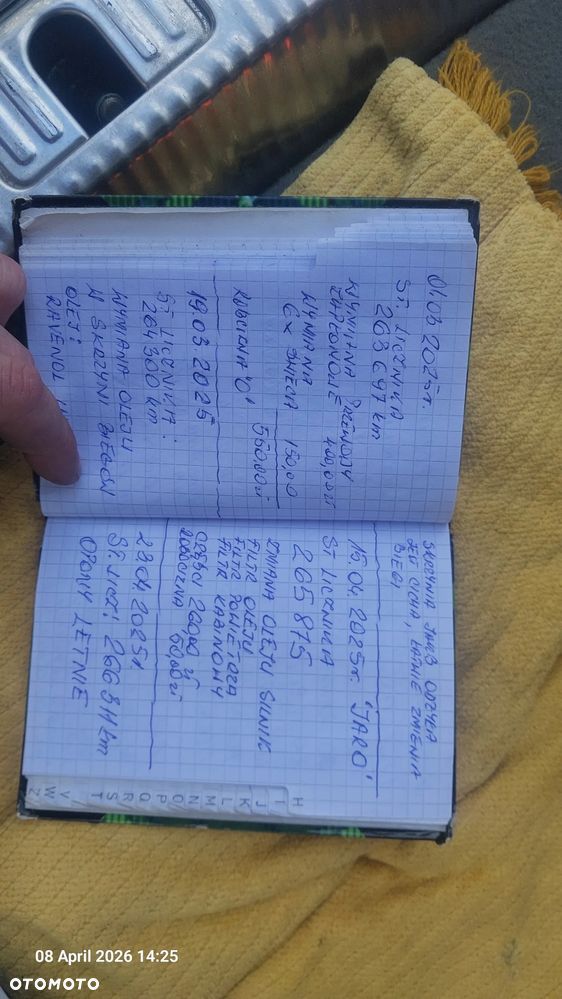 01.03 2025r.
ST. LICZNIKA
263 647 km
WYMIANA PRZEWODY
ZAPŁONOWE 400,00 zł
WYMIANA
6x ŚWIECA 150,00
550,00 zł
ROBOCIZNA "0"
19.03 2025
ST LICZNIKA:
264 300 km
WYMIANA OLEJU
W SKRZYNI BIEGÓW
OLEJ:
RAVENOL
SKRZYNIA
JEST CICHA, ŁADNIE ZMIENIA
BIEGI
15.04 2025r. "JARO"
ST LICZNIKA
265 875
ZMIANA OLEJU SILNIK
FILTR OLEJU
FILTR POWIETRZA
FILTR KABINOWY
CZĘŚCI 260,00 zł
ROBOCIZNA 60,00 zł
22 04 2025r
ST LICZ: 266 311 km
OPONY LETNIE
H
I
J
K
L
M
N
O
P
Q
R
S
T
V
W
Z
08 April 2026 14:25
OTOMOTO